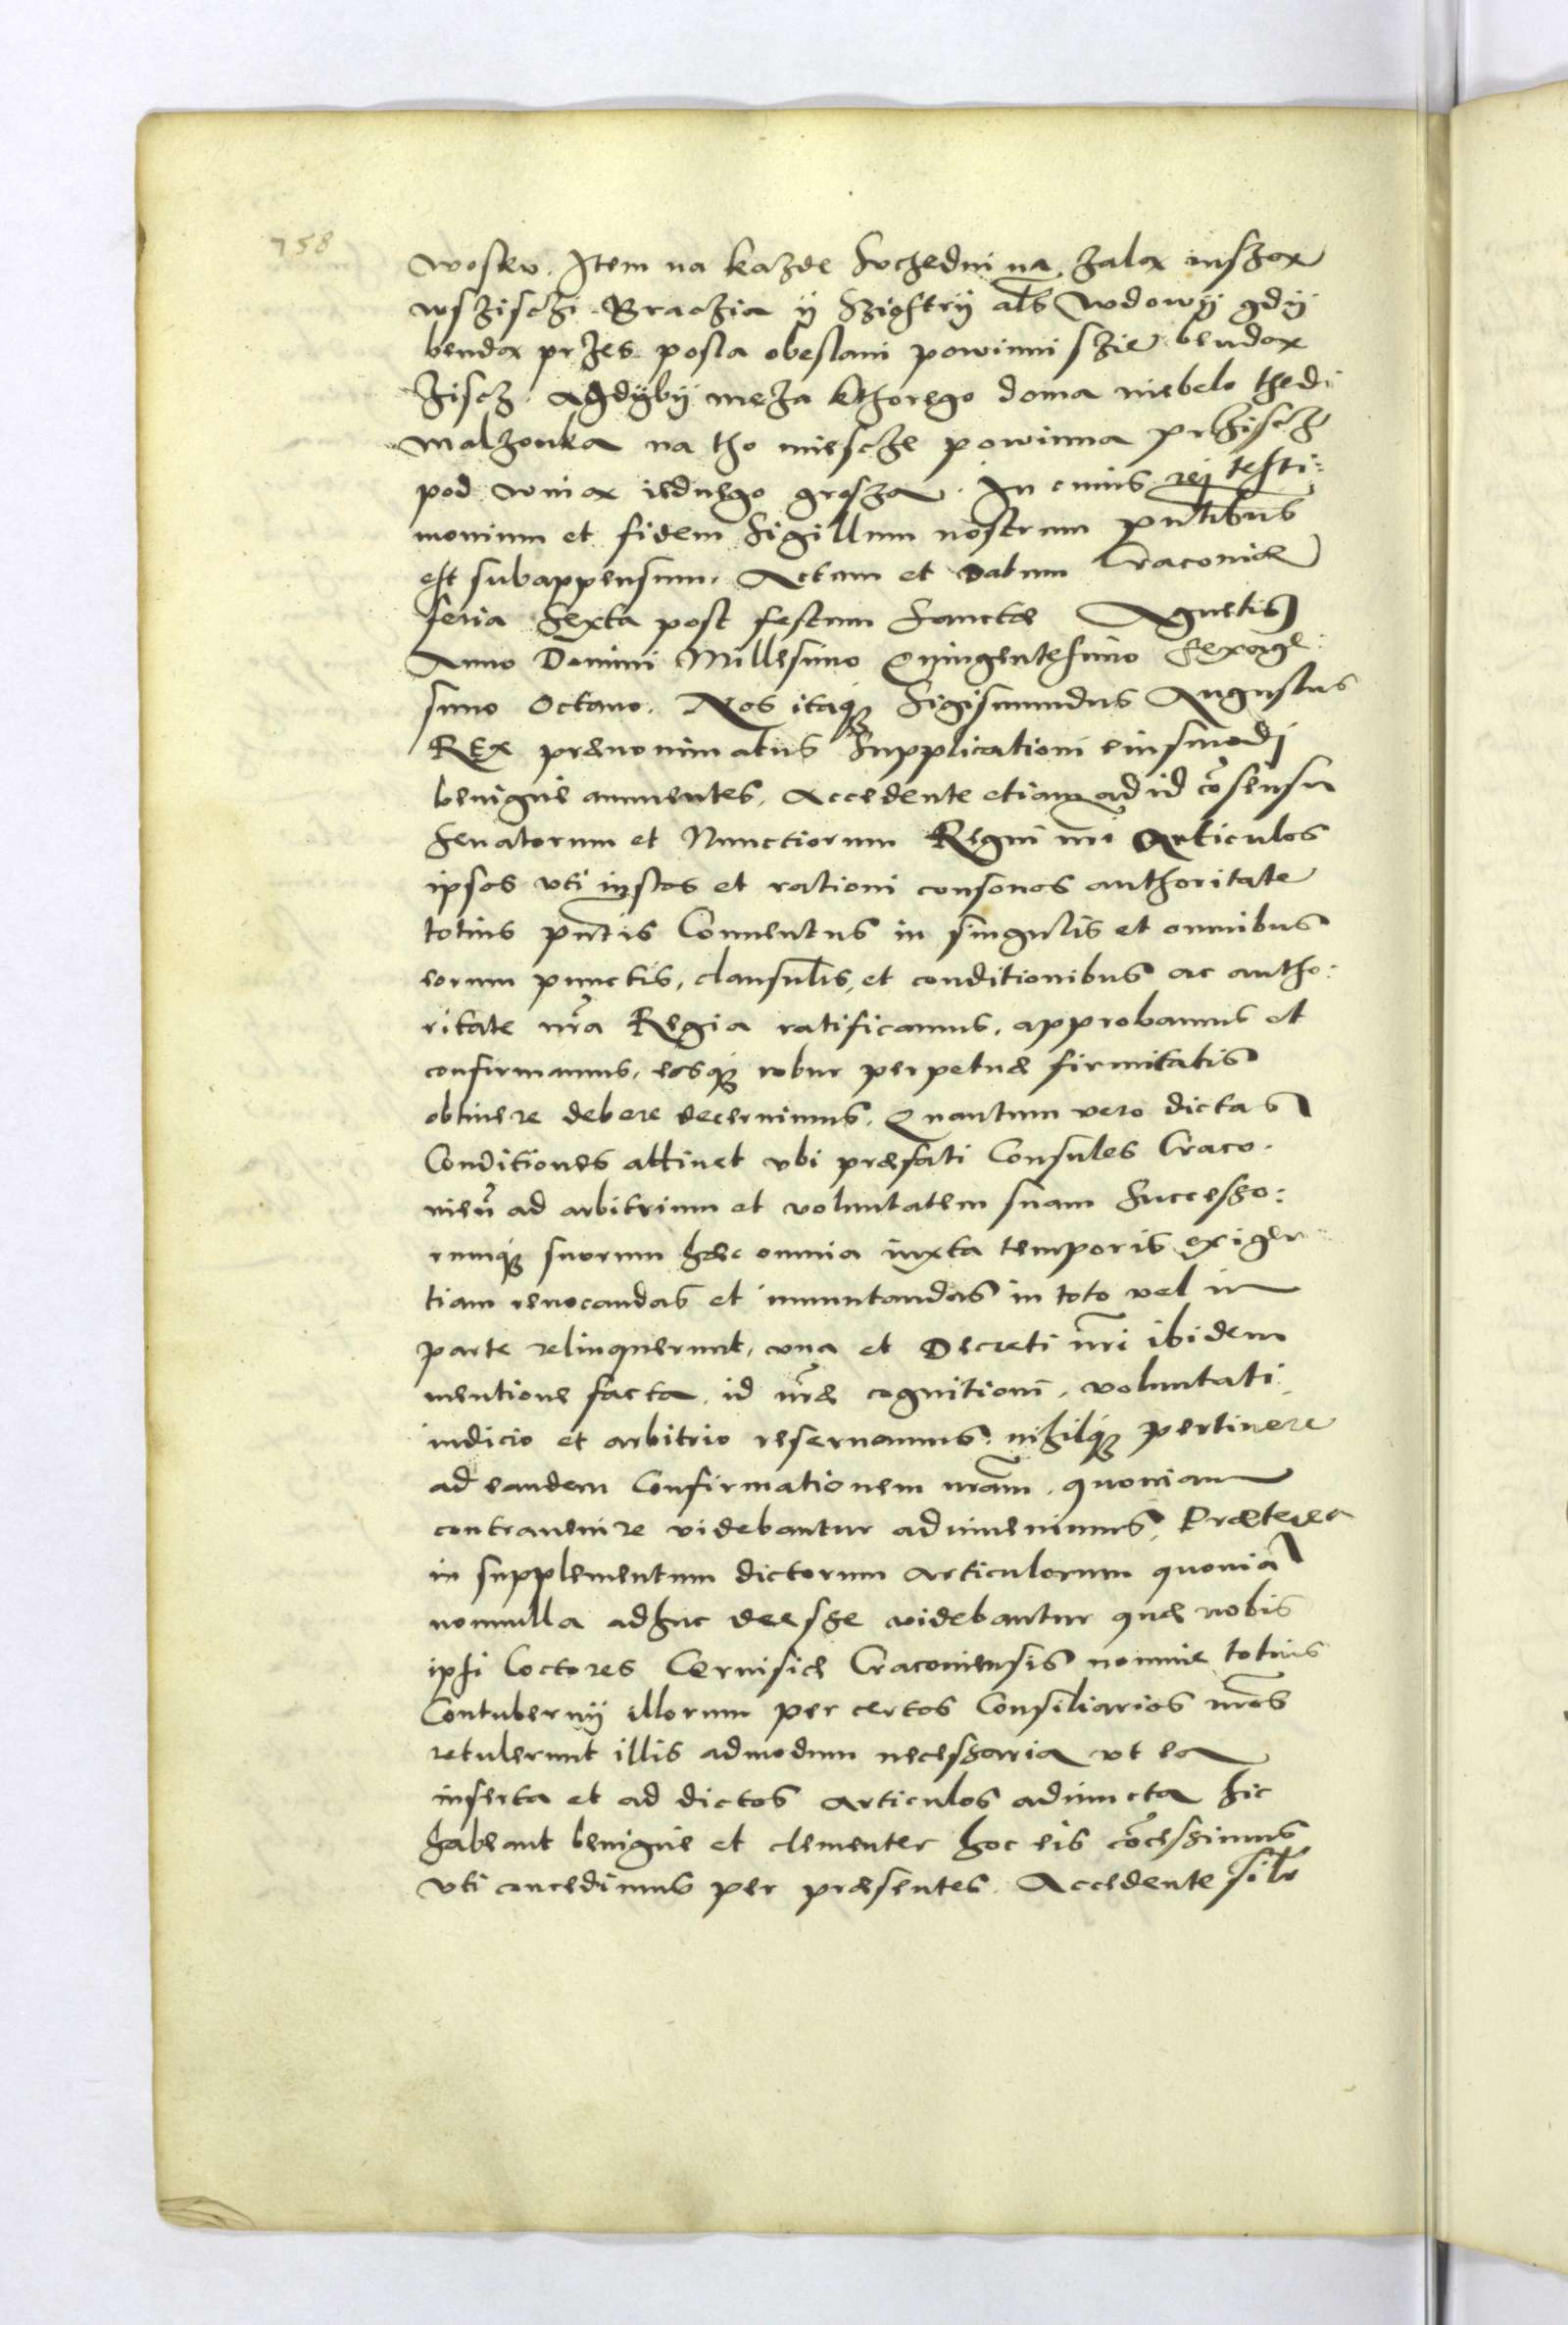 758
wosku. Item na kazde Suchedni na zalox mszox
wsziſczi Braczia ÿ Sziostrÿ alb Wdowÿ gdÿ
bendox przes posla obeslani powinni szie bendox
ziscz. Agdÿbÿ meza kthorego doma niebelo thedi
malzonka na tho miescze powinna przziscz
pod winox iednego grosza. In cuius rei testi:
monium et fidem Sigillum nostrum pntibus
est subappensum. Actum et Datum Cracoviæ
feria Sexta post festum Sanctæ Agnetis
Anno Domini Millesimo Quingentesimo Sexage:
simo Octavo. Nos itaq; Sigismundus Augustus
REx prænominatus Supplicationi eiusmodi
benigne annuentes, accedente etiam ad id cõsensu
Senatorum et Nunctiorum Regni nri Articulos
ipsos uti iustos et rationi consonos authoritate
totius pntis Conventus in singulis et omnibus
eorum punctis, clausulis, et conditionibus ac autho:
ritate nra Regia ratificamus, approbamus et
confirmamus, eosq; robur perpetuæ firmitatis
obtinere debere decernimus. Quantum vero dictas
Conditiones attinet ubi præfati Consules Craco.
nieñ ad arbitrium et voluntatem suam Successo:
rumq; suorum hæc omnia iuxta temporis exigen
tiam revocandas et immutandas in toto vel in
parte relinquerunt, una et Decreti nri ibidem
mentione facta, id nræ cognitioni, voluntati,
iudicio et arbitrio reservamus: nihilq; pertinere
ad eandem Confirmationem nram, quoniam
contravenire videbantur adinvenimus. Præterea
in supplementum dictorum articulorum quoniã
nonnulla adhuc deesse videbantur quæ nobis
ipsi Coctores Cervisiæ Cracoviensis nomine totius
Contubernij illorum per certos Consiliarios nros
retulerunt illis admodum necessaria ut ea
inserta et ad dictos articulos adiuncta hic
habeant benigne et clementer hoc eis cõcessimus
uti concedimus per præsentes. Accedente silr